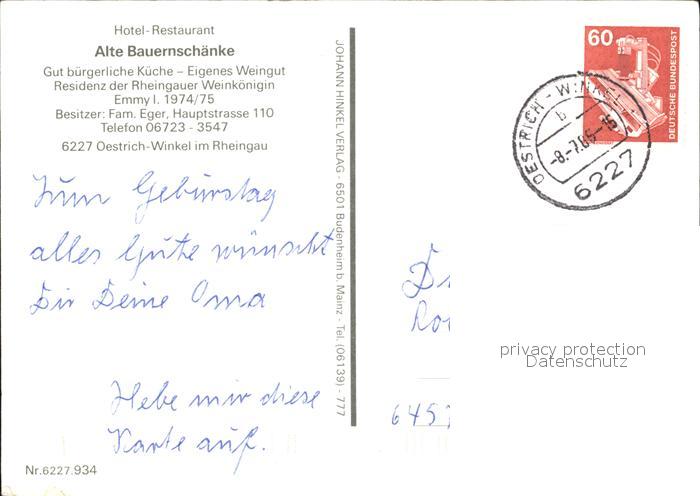 Hotel-Restaurant
Alte Bauernschänke
Gut bürgerliche Küche – Eigenes Weingut
Residenz der Rheingauer Weinkönigin
Emmy I. 1974/75
Besitzer: Fam. Eger, Hauptstrasse 110
Telefon 06723 - 3547
6227 Oestrich-Winkel im Rheingau
Zum Geburstag
alles Gute wünscht
Dir Deine Oma
Hebe mir diese
Karte auf.
Nr.6227.934
JOHANN HINKEL VERLAG · 6501 Budenheim b. Mainz · Tel. (06139) - 777
60
DEUTSCHE BUNDESPOST
OESTRICH-WINKEL
b
6227
privacy protection
Datenschutz